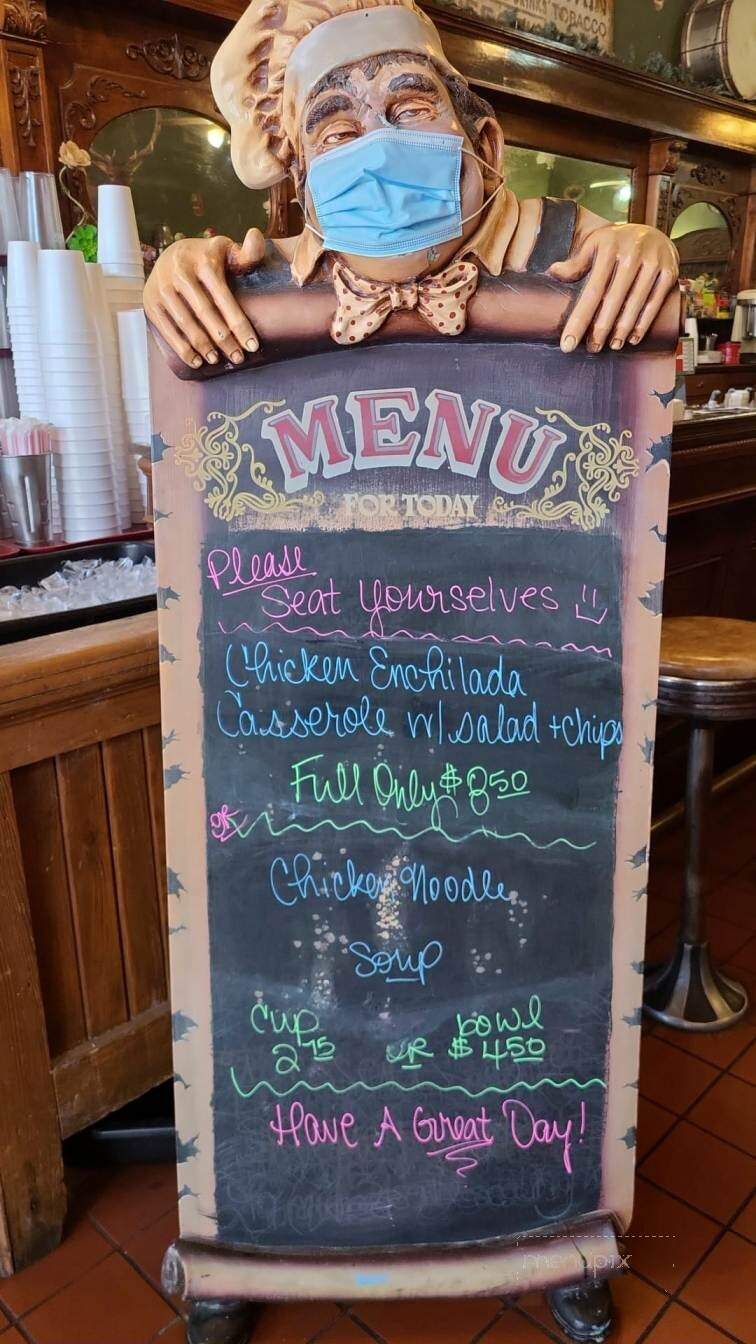 TOBACCO
MENU
FOR TODAY
Please
Seat Yourselves
Chicken Enchilada
Casserole w/ salad + chips
Full Only $8.50
or
Chicken Noodle
Soup
cup or bowl
2.75 $4.50
Have A Great Day!
menupix